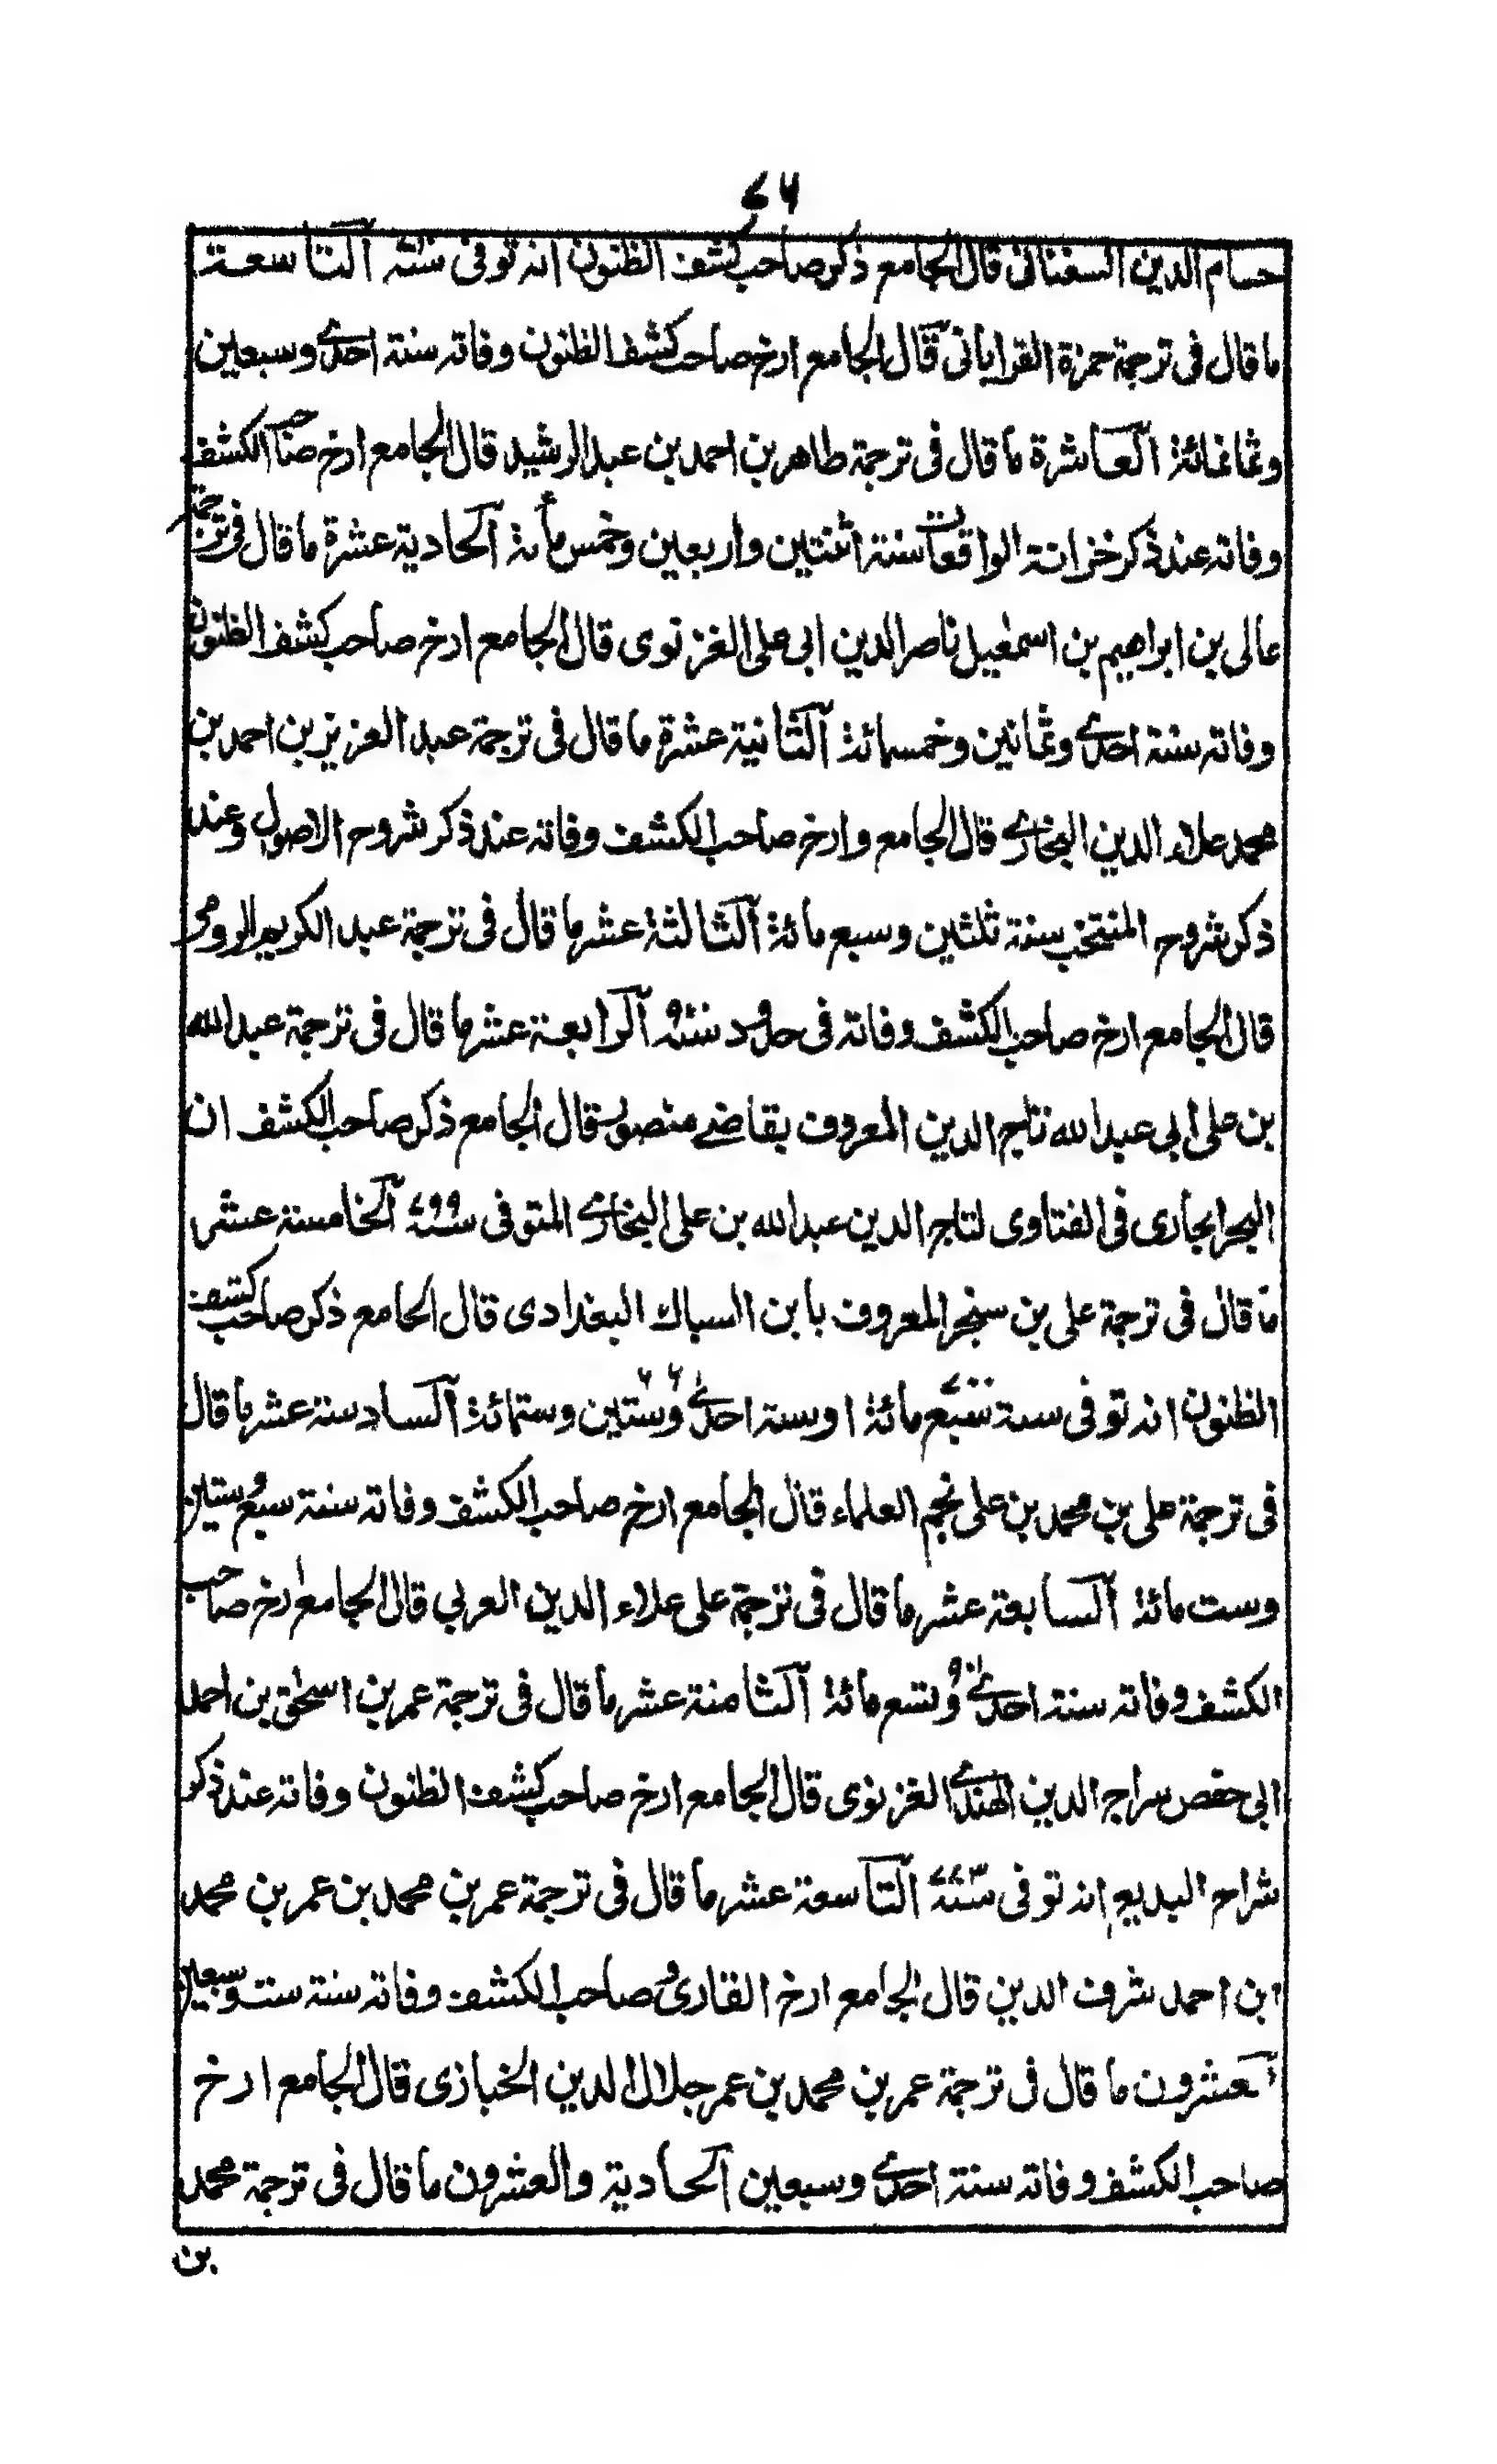 ٧٦
حسام الدين السغناقى قال الجامع ذكر صاحب كشف الظنون انه توفى سنة التاسعة
ما قال فى ترجمة حمزة القرامانى قال الجامع ارخ صاحب كشف الظنون وفاته سنة احدى وسبعين
وثمانمائة العاشرة ما قال فى ترجمة طاهر بن احمد بن عبد الرشيد قال الجامع ارخ صاحب الكشف
وفاته عند ذكر خزانة الواقعات سنة اثنتين واربعين وخمس مأة الحادية عشرة ما قال فى ترجمة
عالى بن ابراهيم بن اسمعيل ناصر الدين ابى على الغزنوى قال الجامع ارخ صاحب كشف الظنون
وفاته سنة احدى وثمانين وخمسمائة الثانية عشرة ما قال فى ترجمة عبد العزيز بن احمد بن
محمد علاء الدين البخارى قال الجامع وارخ صاحب الكشف وفاته عند ذكر شروح الاصول وعند
ذكر شروح المنتخب سنة ثلثين وسبع مائة الثالثة عشر ما قال فى ترجمة عبد الكريم الرومى
قال الجامع ارخ صاحب الكشف وفاته فى حدود سنة الرابعة عشر ما قال فى ترجمة عبد الله
بن على ابى عبد الله تاج الدين المعروف بقاضى منصور قال الجامع ذكر صاحب الكشف ان
البحر الجارى فى الفتاوى لتاج الدين عبد الله بن على البخارى المتوفى سنة ٧٩٩ الخامسة عشر
ما قال فى ترجمة على بن سنجر المعروف بابن السباك البغدادى قال الجامع ذكر صاحب كشف
الظنون انه توفى سنة سبع مائة ٧٠٠ او سنة احدى وستين وستمائة ٦٦١ السادسة عشر ما قال
فى ترجمة على بن محمد بن على نجم العلماء قال الجامع ارخ صاحب الكشف وفاته سنة سبع وستين
وست مائة السابعة عشر ما قال فى ترجمة على علاء الدين العربى قال الجامع ارخ صاحب
الكشف وفاته سنة احدى وتسع مائة ٩٠١ الثامنة عشر ما قال فى ترجمة عمر بن اسحق بن احمد
ابى حفص سراج الدين الهندى الغزنوى قال الجامع ارخ صاحب كشف الظنون وفاته عند ذكر
شراح البديع انه توفى سنة ٧٧٣ التاسعة عشر ما قال فى ترجمة عمر بن محمد بن عمر بن محمد
ابن احمد شرف الدين قال الجامع ارخ القارى وصاحب الكشف وفاته سنة ست وسبعين
العشرون ما قال فى ترجمة عمر بن محمد بن عمر جلال الدين الخبازى قال الجامع ارخ
صاحب الكشف وفاته سنة احدى وسبعين الحادية والعشرون ما قال فى ترجمة محمد
بن